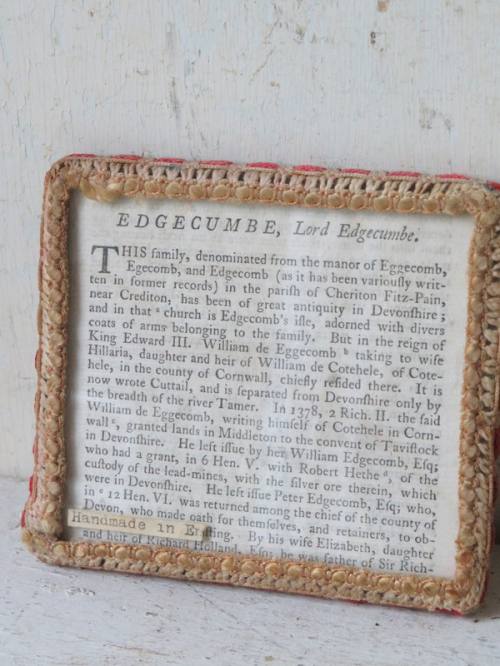 EDGECUMBE, Lord Edgecumbe.
THIS family, denominated from the manor of Eggecomb,
Egecomb, and Edgecomb (as it has been variouſly writ-
ten in former records) in the pariſh of Cheriton Fitz-Pain,
near Crediton, has been of great antiquity in Devonſhire;
and in that a church is Edgecumb's iſle, adorned with divers
coats of arms belonging to the family. But in the reign of
King Edward III. William de Eggecomb b taking to wife
Hillaria, daughter and heir of William de Cotehele, of Cote-
hele, in the county of Cornwall, chiefly reſided there. It is
now wrote Cuttail, and is ſeparated from Devonſhire only by
the breadth of the river Tamer. In 1378, 2 Rich. II. the ſaid
William de Eggecomb, writing himſelf of Cotehele in Corn-
wall c, granted lands in Middleton to the convent of Taviſtock
in Devonſhire. He left iſſue by her William Edgecomb, Eſq;
who had a grant, in 6 Hen. V. with Robert Hethe d, of the
cuſtody of the lead-mines, with the ſilver ore therein, which
were in Devonſhire. He left iſſue Peter Edgecomb, Eſq; who,
in e 12 Hen. VI. was returned among the chief of the county of
Devon, who made oath for themſelves, and retainers, to ob-
Handmade in En
ing. By his wife Elizabeth, daughter
and heir of Richard Holland, Eſq; he was father of Sir Rich-